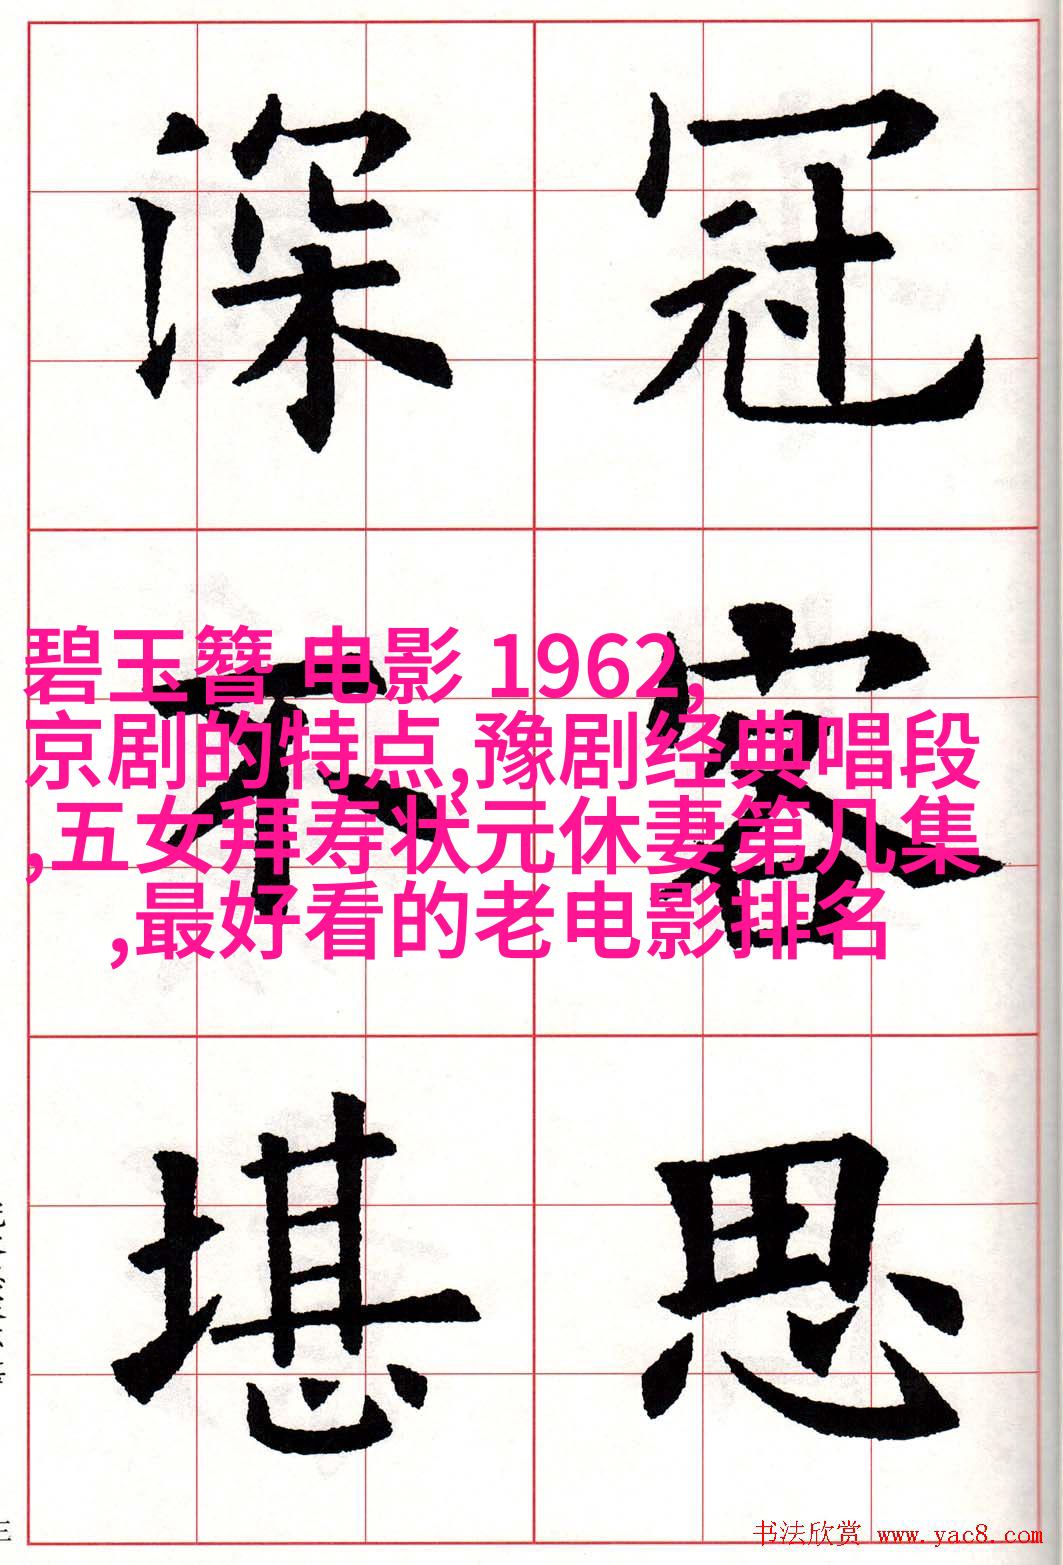 冠容思
深不堪
碧玉簪 电影 1962,
京剧的特点,豫剧经典唱段
,五女拜寿状元休妻第几集
,最好看的老电影排名
书法欣赏 www.yac8.com